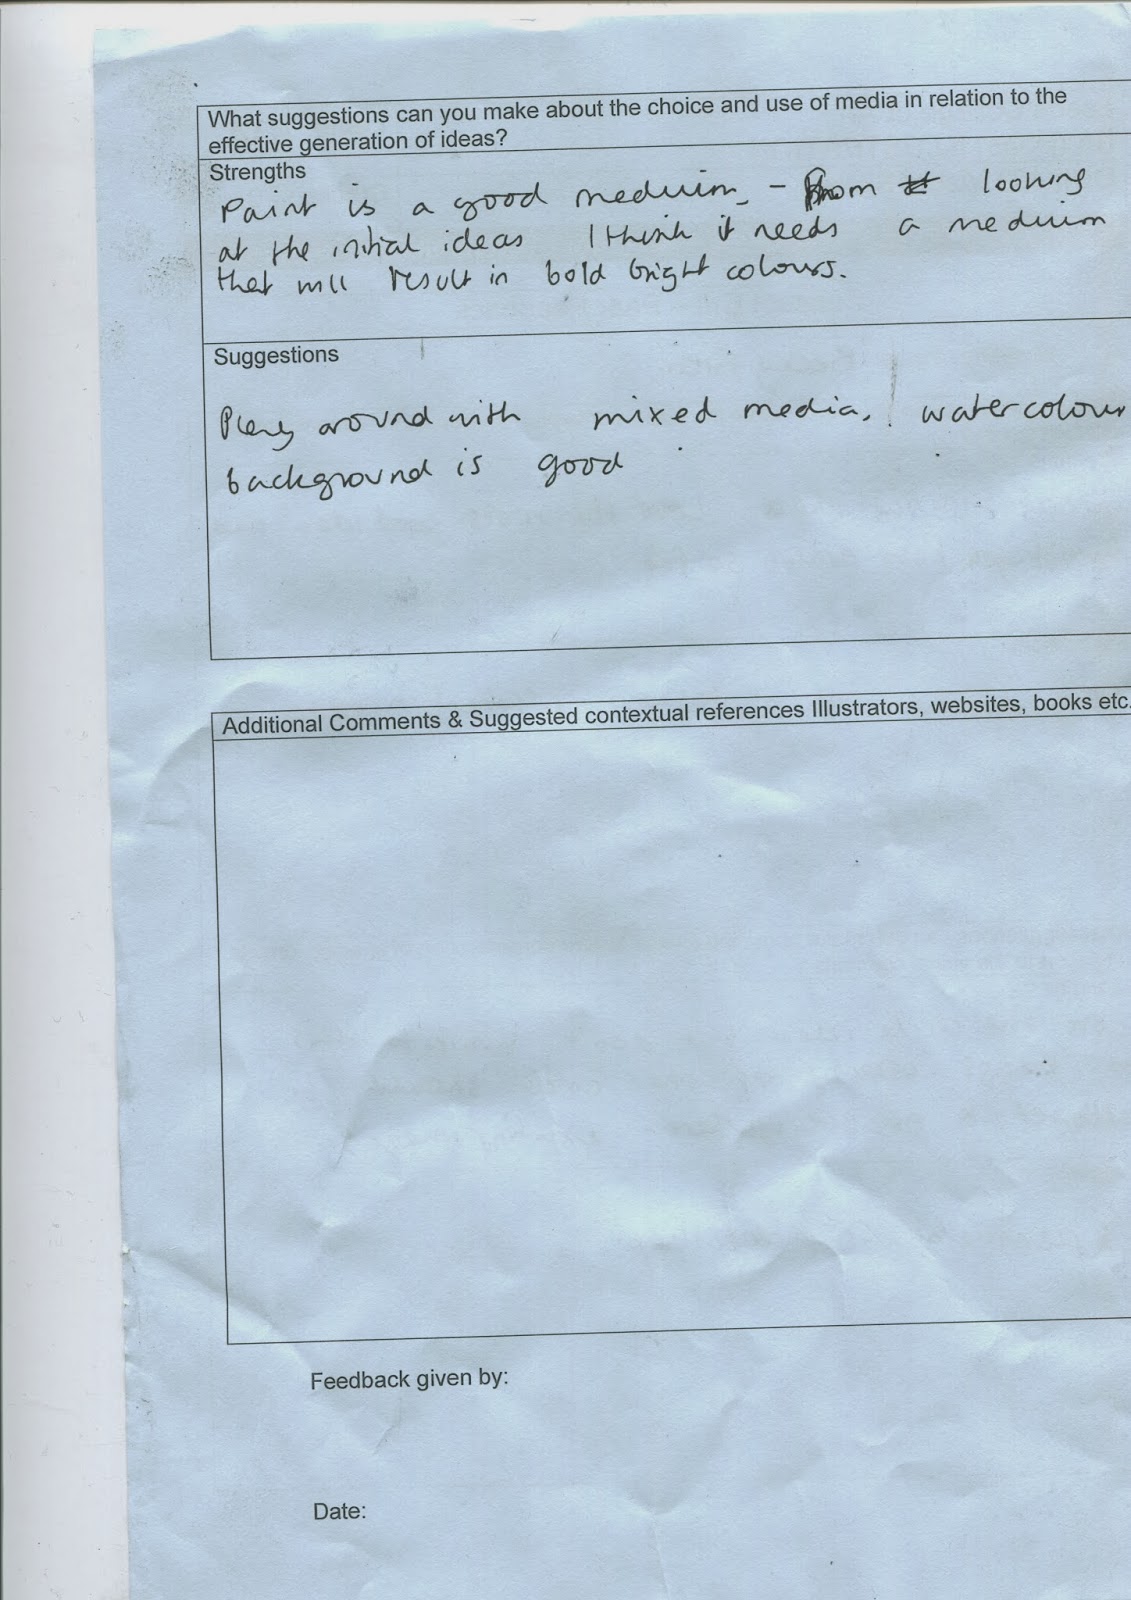 What suggestions can you make about the choice and use of media in relation to the
effective generation of ideas?
Strengths
Paint is a good medium - From looking
at the initial ideas I think it needs a medium
that will result in bold bright colours.
Suggestions
Play around with mixed media, watercolour
background is good
Additional Comments & Suggested contextual references Illustrators, websites, books etc.
Feedback given by:
Date: